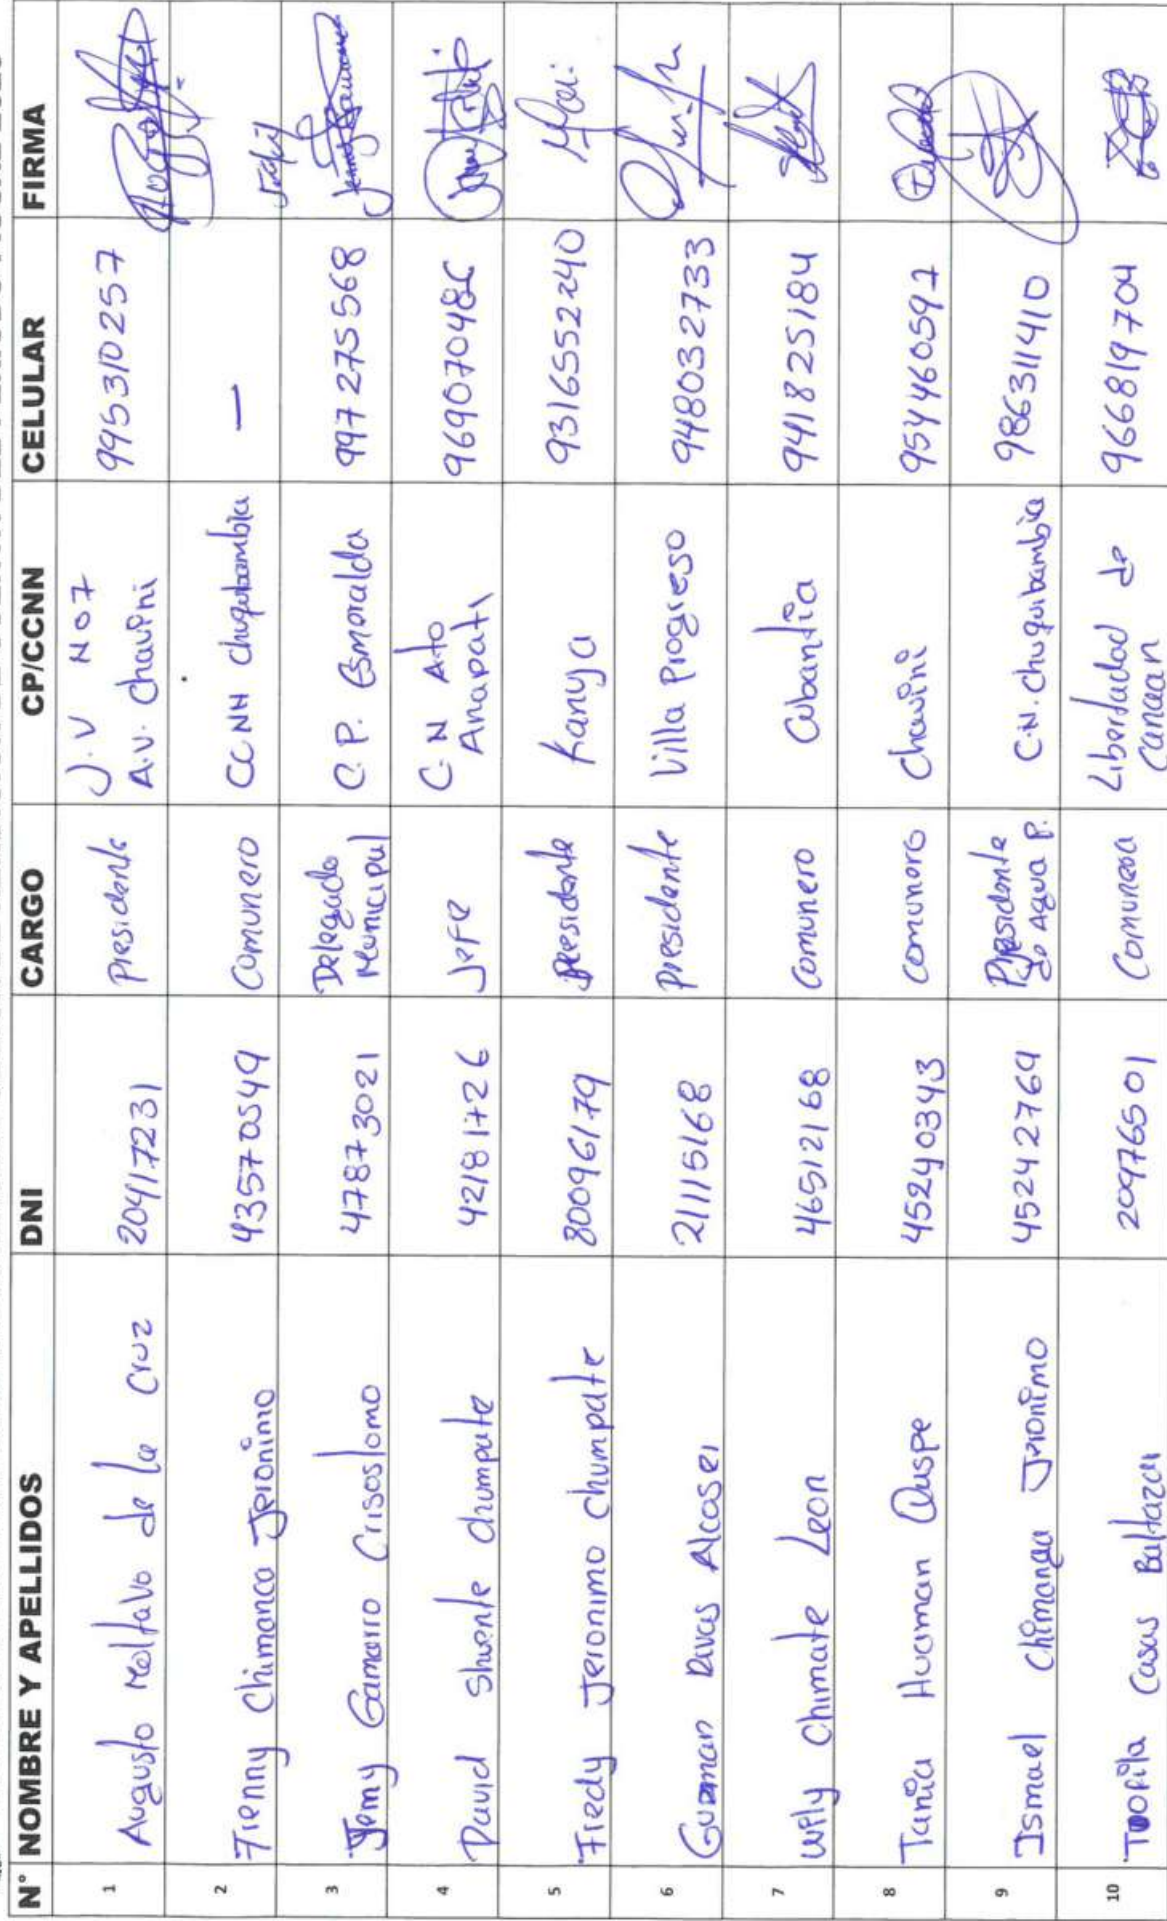 N° NOMBRE Y APELLIDOS DNI CARGO CP/CCNN CELULAR FIRMA
1 Augusto Moltalvo de la Cruz 20417231 presidente J.V N07 995310257
A.V. Chavini
2 Frenny Chimanca Jeronimo 43570549 Comunero CCNN chuquibambia —
3 Jemy Gamarro Crisostomo 47873021 Delegado Municipal C.P. Esmeralda 997275568
4 David Shuente chumpate 42181726 Jefe C.N Alto 969070486
Anapati
5 Fredy Jeronimo chumpate 80096179 presidente Kanuja 9316552240
6 Guzman Rivas Alcoser 21115168 presidente Villa Progreso 948032733
7 Wily Chimate Leon 46512168 Comunero Cubantia 941825184
8 Tania Huaman Quispe 45240343 comunero Chavini 954460597
9 Ismael Chimanga Jeronimo 45242769 Presidente C.N. chuquibambia 986311410
de Agua P.
10 Teofila Casas Baltazar 20976501 Comunera Libertadod de 966819704
Cancan